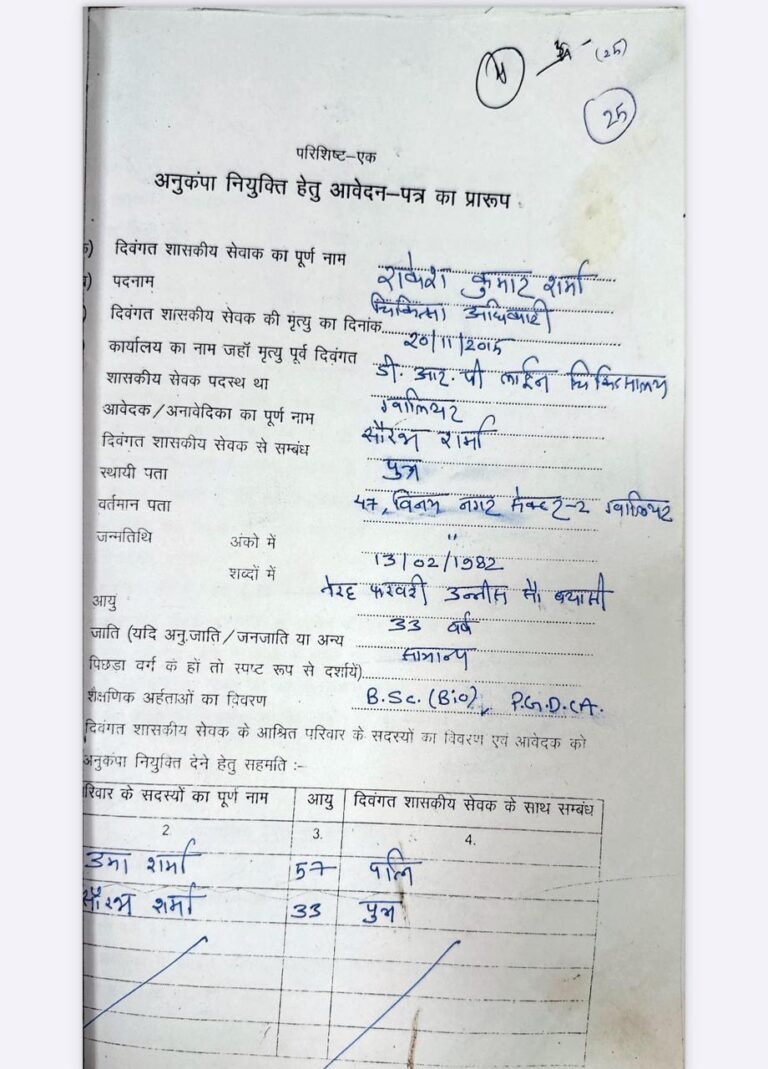 (25)
25
परिशिष्ट–एक
अनुकंपा नियुक्ति हेतु आवेदन–पत्र का प्रारूप
दिवंगत शासकीय सेवाक का पूर्ण नाम राकेश कुमार शर्मा
पदनाम चिकित्सा अधिकारी
दिवंगत शासकीय सेवक की मृत्यु का दिनांक 20/11/2015
कार्यालय का नाम जहाँ मृत्यु पूर्व दिवंगत डी. आर. पी लाईन चिकित्सालय
शासकीय सेवक पदस्थ था ग्वालियर
आवेदक/अनावेदिका का पूर्ण नाम सौरभ शर्मा
दिवंगत शासकीय सेवक से सम्बंध पुत्र
स्थायी पता 47, विनय नगर सेक्टर-2 ग्वालियर
वर्तमान पता "
जन्मतिथि अंको में 13/02/1982
शब्दों में तेरह फरवरी उन्नीस सौ बयासी
आयु 33 वर्ष
जाति (यदि अनु.जाति/जनजाति या अन्य सामान्य
पिछड़ा वर्ग के हों तो स्पष्ट रूप से दर्शायें)
शैक्षणिक अर्हताओं का विवरण B.Sc. (Bio), P.G.D.CA.
दिवंगत शासकीय सेवक के आश्रित परिवार के सदस्यों का विवरण एवं आवेदक को
अनुकंपा नियुक्ति देने हेतु सहमति :–
रिवार के सदस्यों का पूर्ण नाम आयु दिवंगत शासकीय सेवक के साथ सम्बंध
2 3. 4.
उमा शर्मा 57 पत्नि
सौरभ शर्मा 33 पुत्र